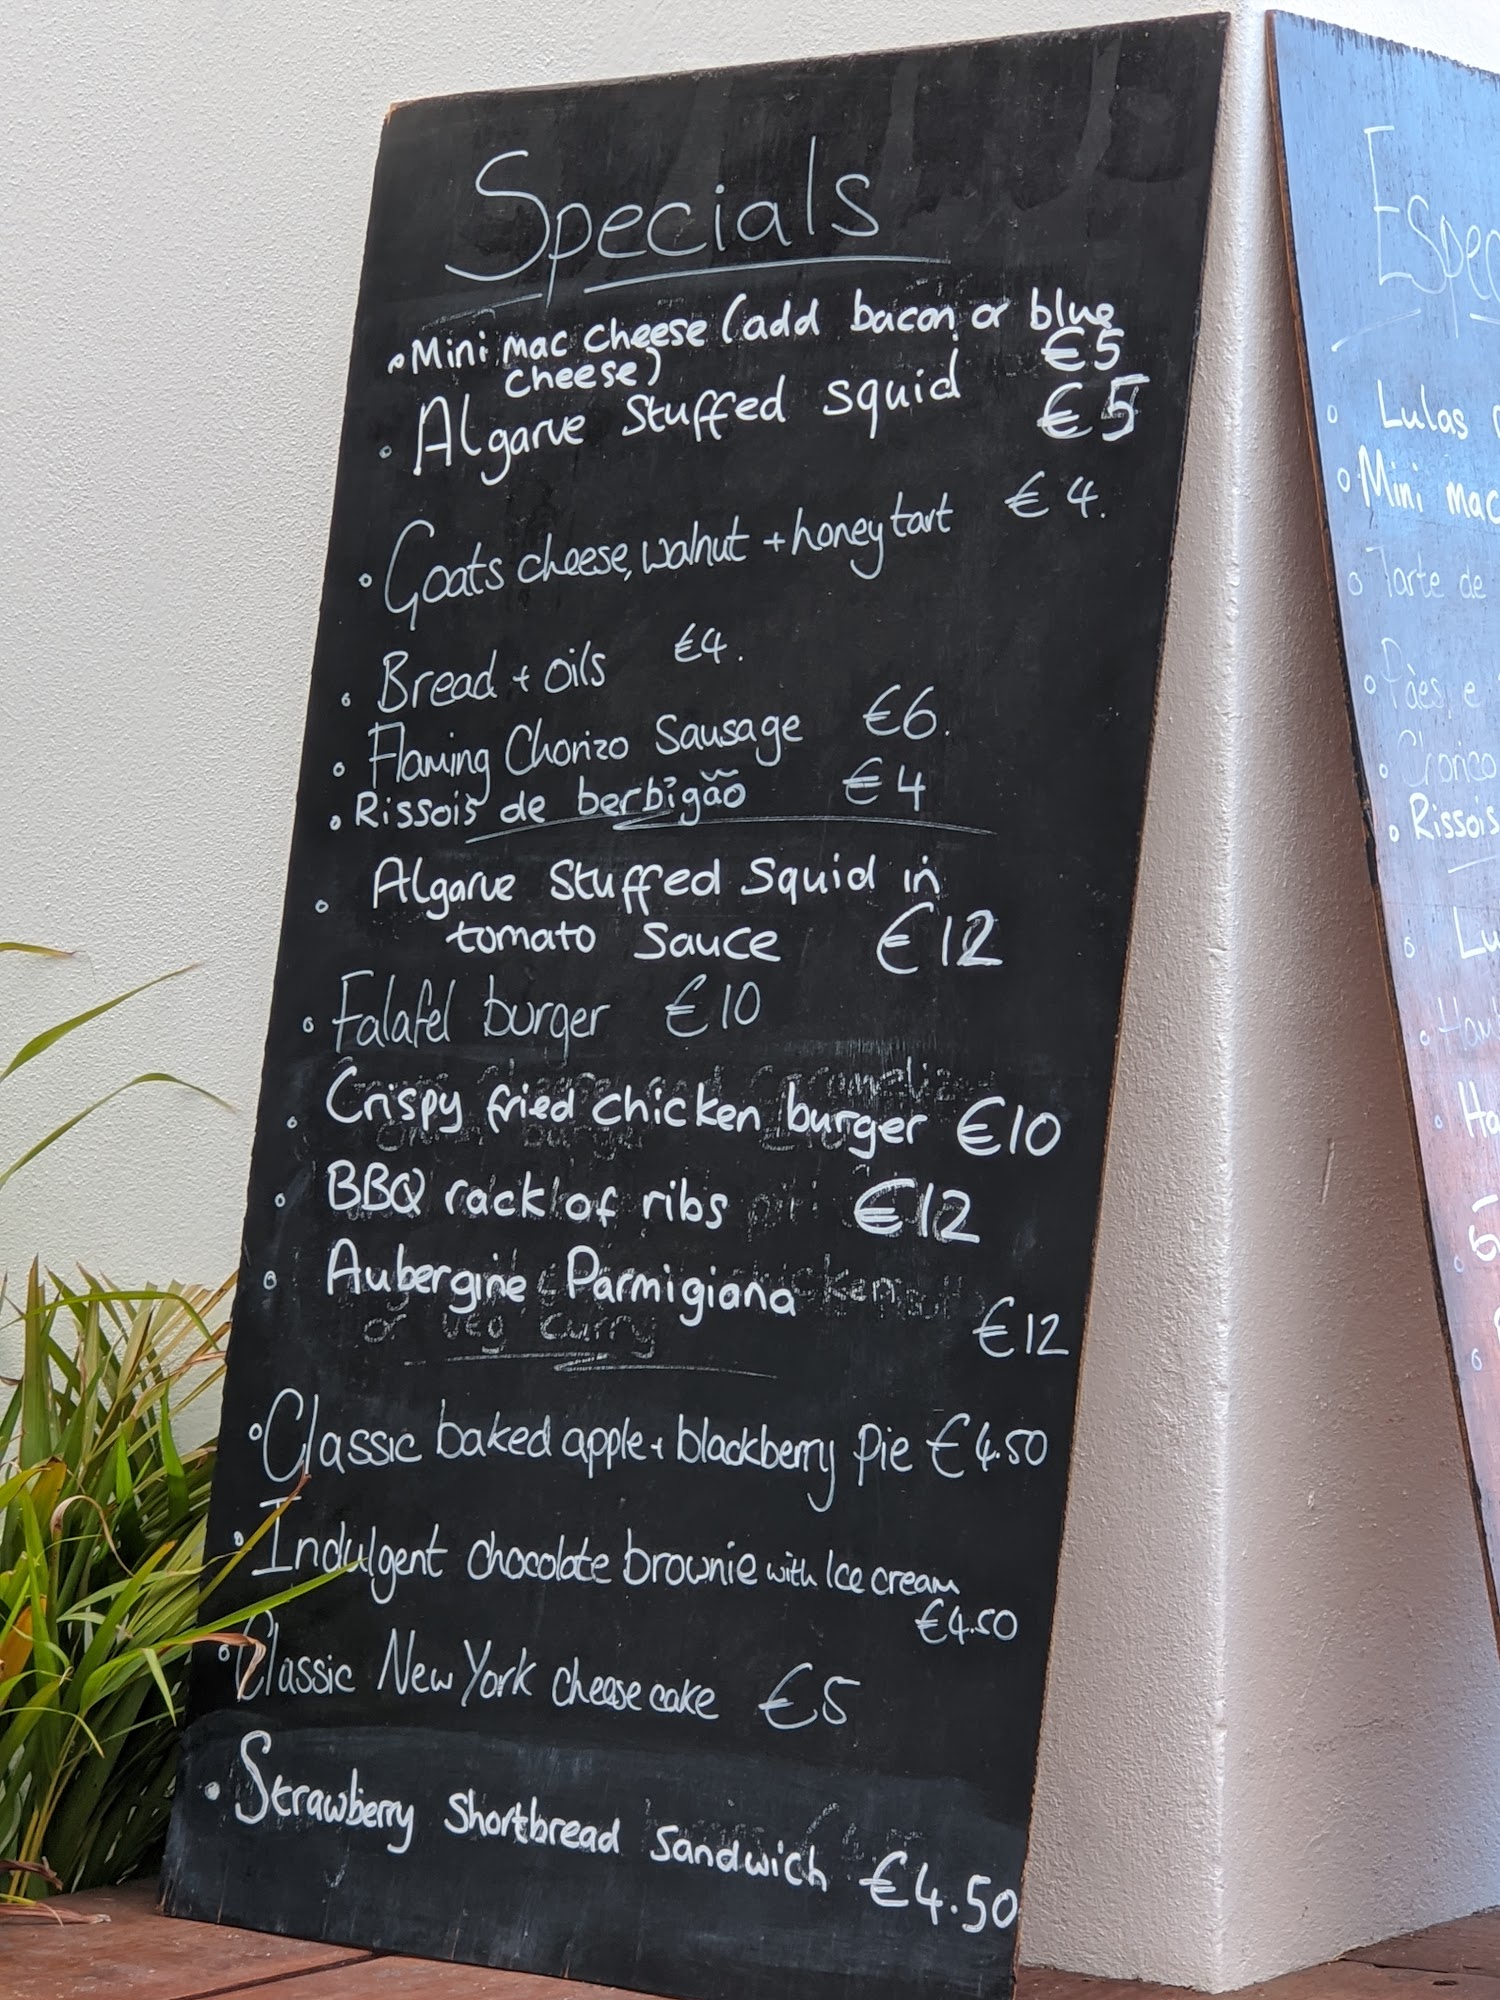 Specials
Mini mac cheese (add bacon or blue
cheese) €5
Algarve Stuffed squid €5
Goats cheese, walnut + honey tart €4.
Bread + oils €4.
Flaming Chorizo Sausage €6.
Rissois de berbigão €4
Algarve Stuffed Squid in
tomato Sauce €12
Falafel burger €10
Crispy fried chicken burger €10
BBQ rack of ribs €12
Aubergine Parmigiana
or veg curry
€12
Classic baked apple + blackberry Pie €4.50
Indulgent chocolate brownie with Ice cream
€4.50
Classic New York cheese cake €5
Strawberry Shortbread Sandwich €4.50
Lulas
Mini mac
Tarte de
Pães e
Rissois